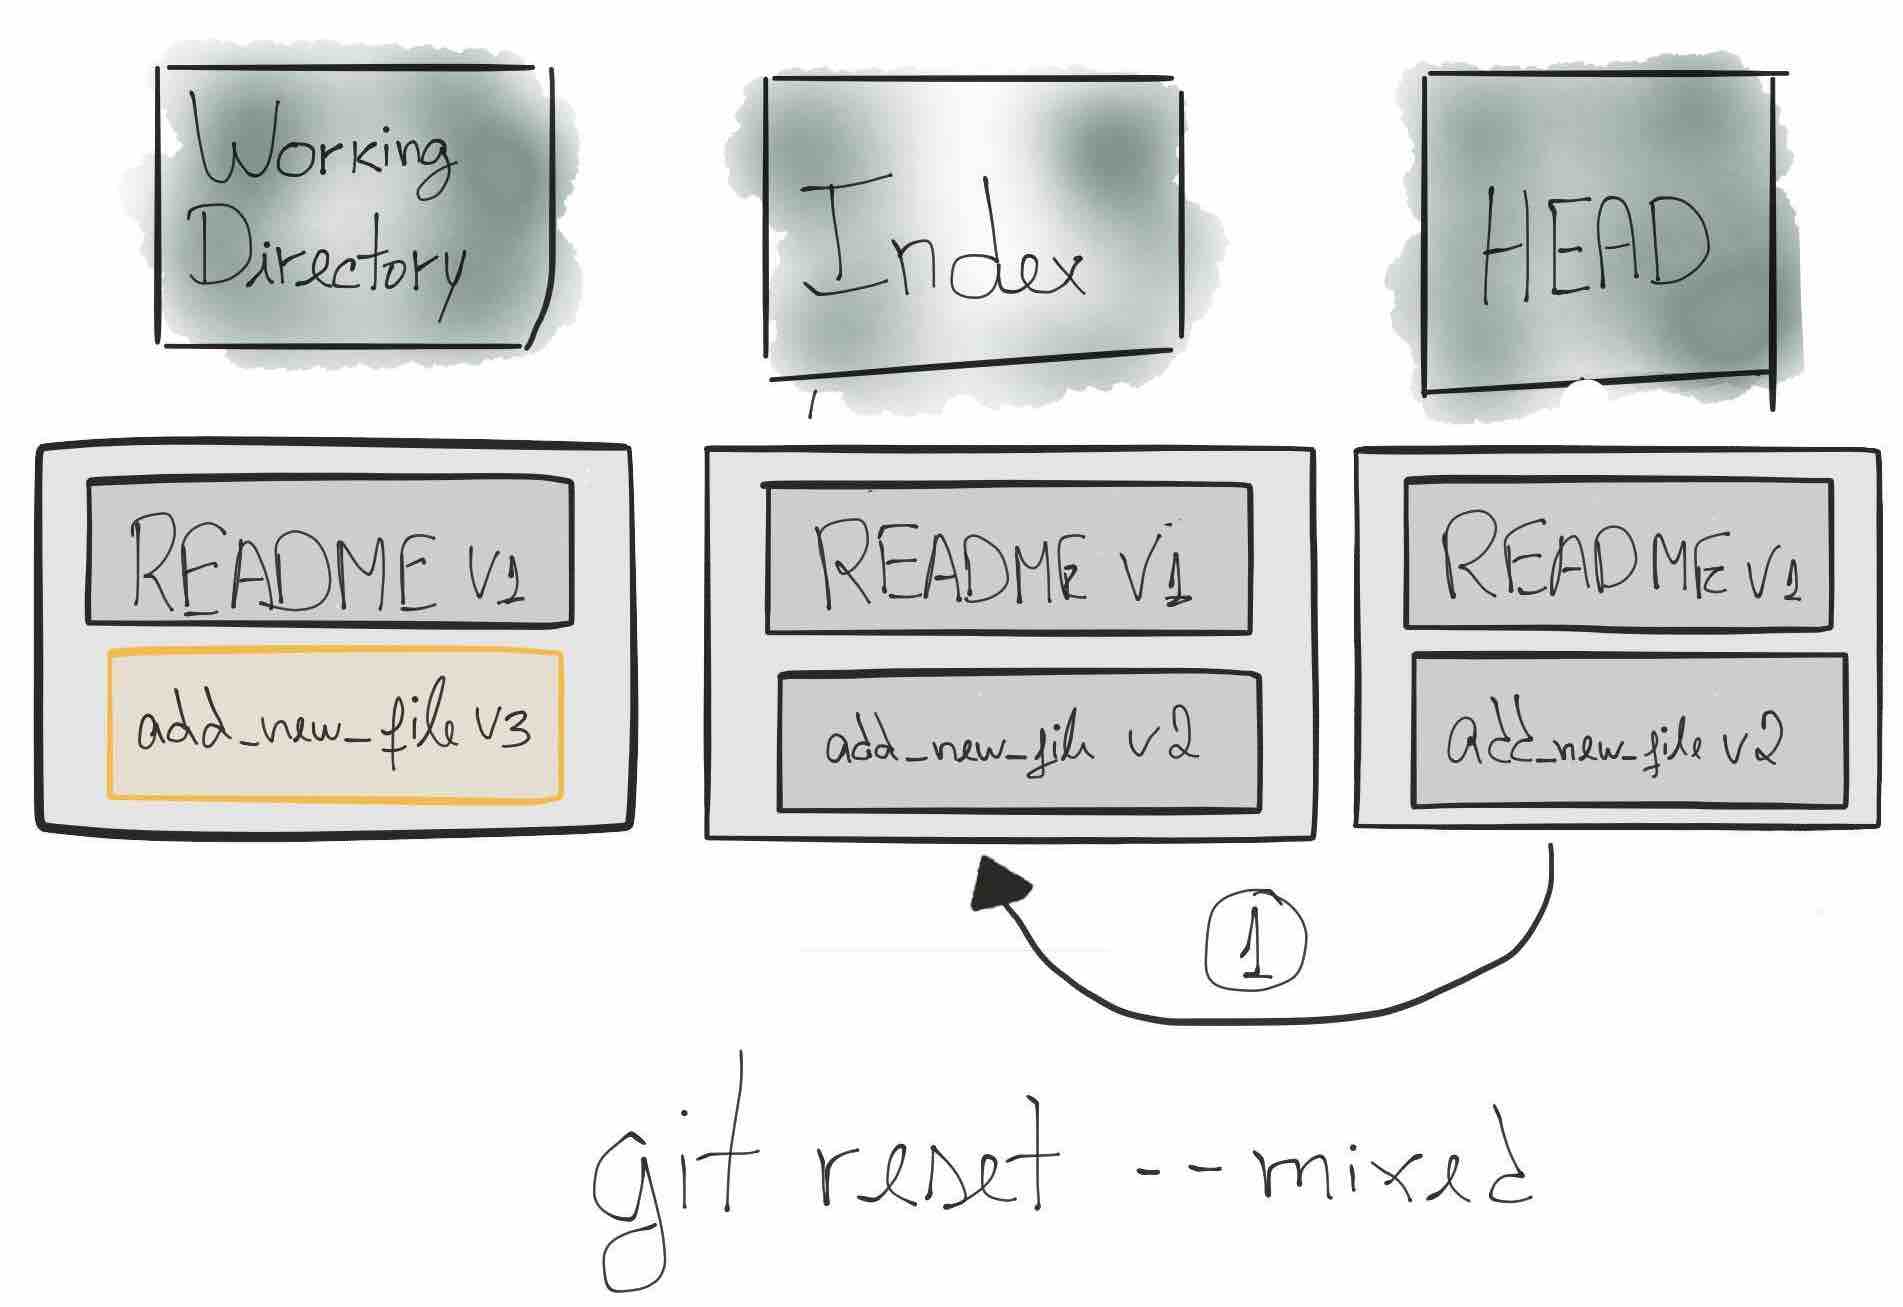 Working
Directory
Index
HEAD
README v1
add_new_file v3
README v1
add_new_file v2
README v1
add_new_file v2
1
git reset --mixed